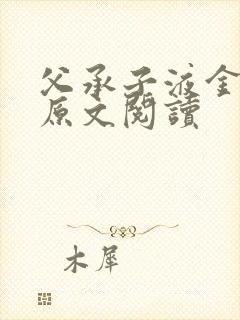 父承子液金
原文閱讀
木犀